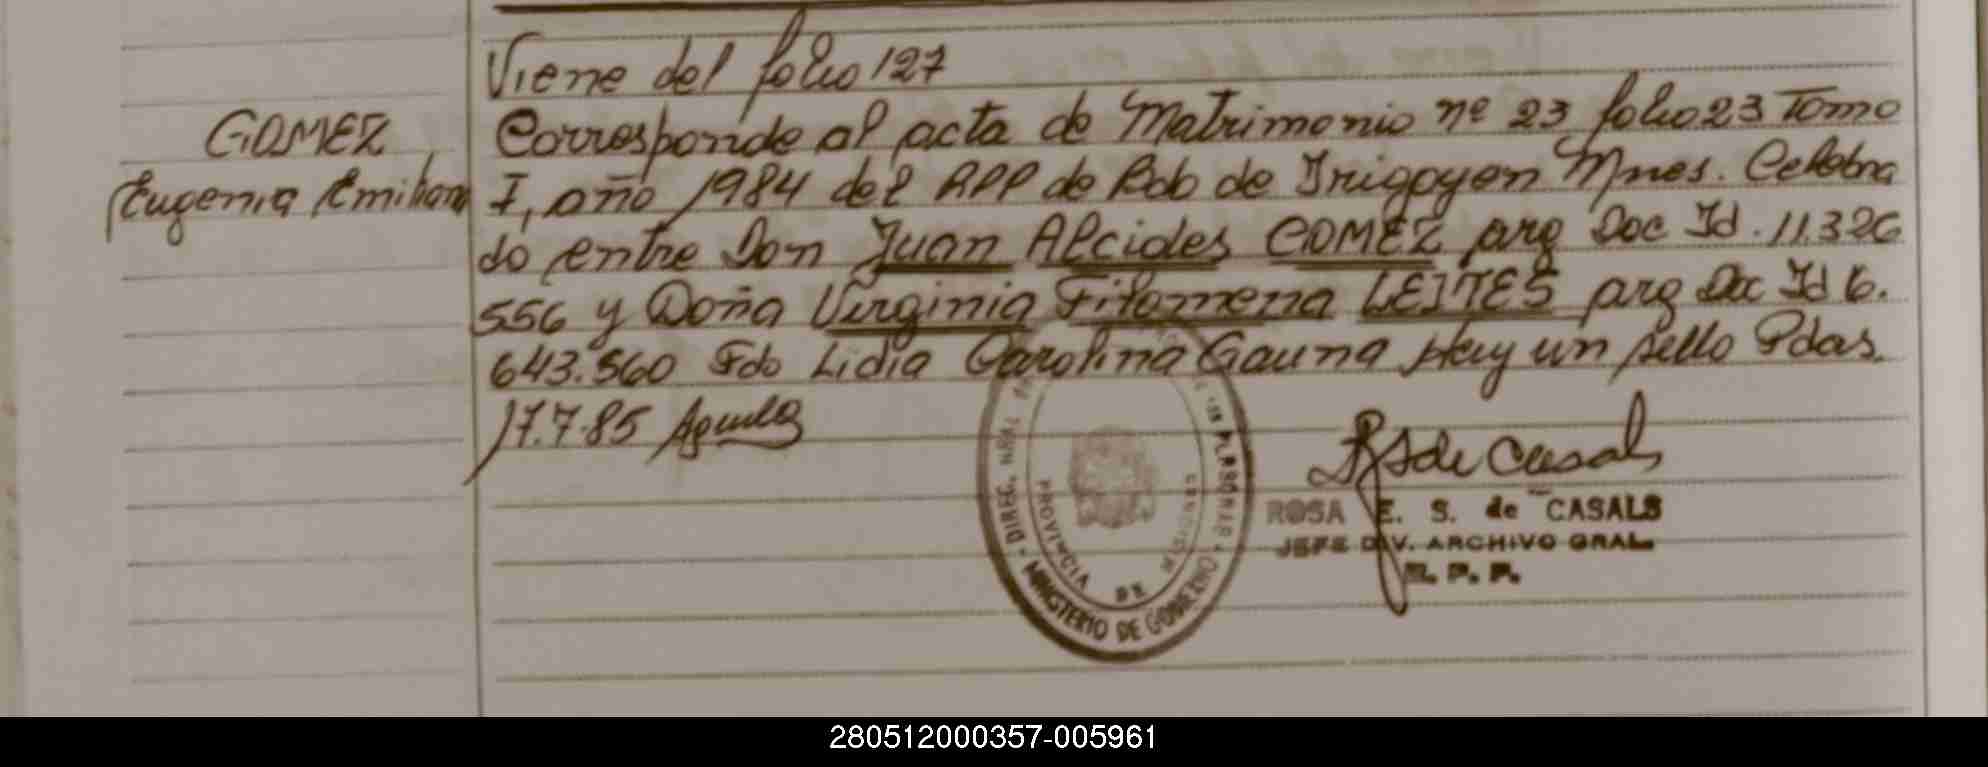 Viene del folio 127
GOMEZ
Eugenia Emiliana
Corresponde al acta de Matrimonio nº 23 folio 23 Tomo
I, año 1984 del RPP de Bdo de Irigoyen Mnes. Celebra
do entre Don Juan Alcides GOMEZ arg Doc Id. 11.326
556 y Doña Virginia Filomena LEITES arg Doc Id 6.
643.560 Fdo Lidia Carolina Gauna Hay un sello Pdas.
17.7.85
RS de Casals
ROSA E. S. de CASALS
JEFE DIV. ARCHIVO GRAL.
R. P. P.
DIREC. GRAL
MINISTERIO DE GOBIERNO
PROVINCIA DE MISIONES
280512000357-005961